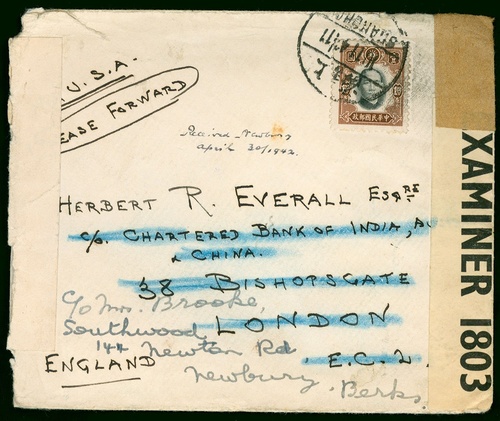 U.S.A.
EASE FORWARD
Received Newbury
April 30/1942.
HERBERT R. EVERALL ESQRE
C/o. CHARTERED BANK OF INDIA, AU
& CHINA.
38 BISHOPSGATE
LONDON
E.C.2.
ENGLAND
C/o Mrs. Brooke,
Southwood,
144 Newton Rd
Newbury. Berks
XAMINER 1803
中華民國郵政